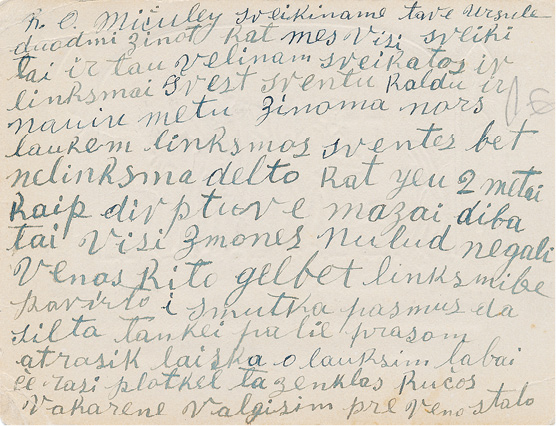 N. C. Mičuley sveikiname tave Ursule
duodmi žinot kat mes visi sveiki
tai ir tau velinam sveikatos ir
linksmai švest šventu Kaldu ir
nauiu metu žinoma nors
laukem linksmos sventes bet
nelinksma delto kat yeu 2 metai
Kaip dirptuve mažai diba
tai visi žmones nulud negali
venas kito gelbet linksmibe
pavirto i smutka pas mus da
silta tankei pa lie prasom
atrasik laiška o lauksim labai
če rasi plotkel ta ženklas Kučos
vakarene valgisim pre veno stalo